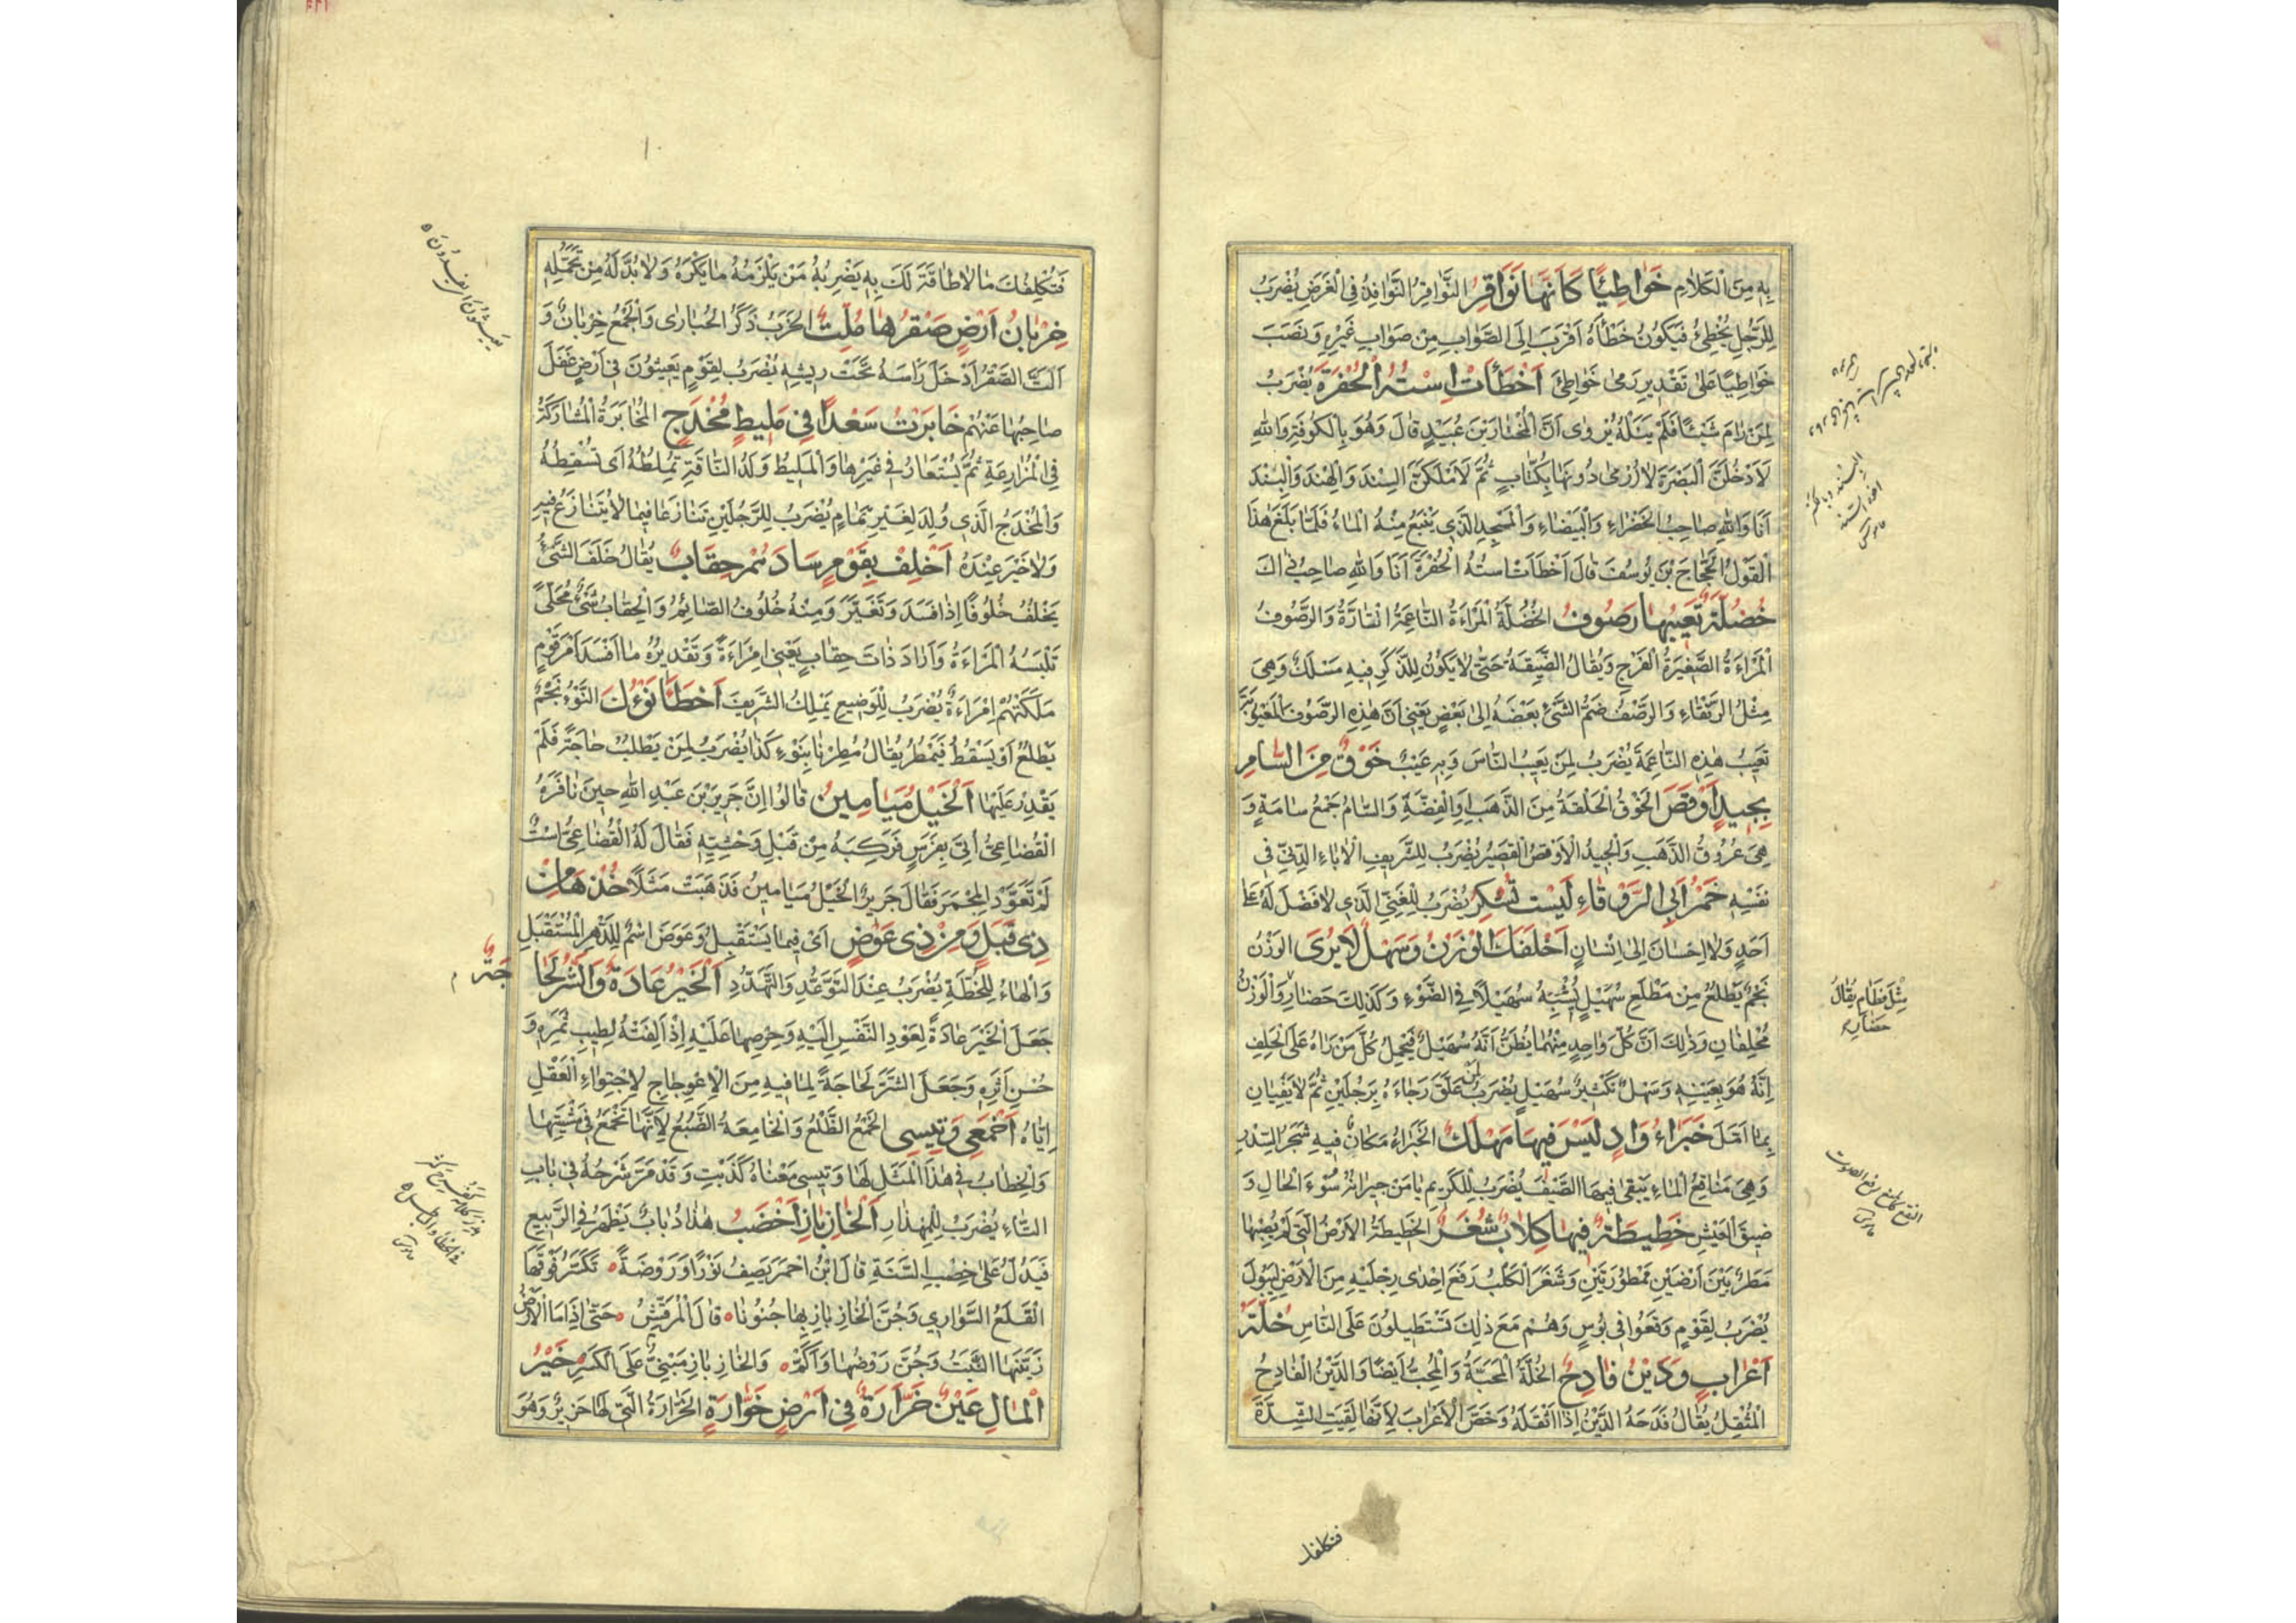 بِهِ مِنَ الْكَلَامِ خَوَاطِئًا كَأَنَّهَا نَوَاقِرُ النَّوَاقِرُ النَّوَافِذُ فِي الْغَرَضِ يُضْرَبُ
لِلرَّجُلِ يُخْطِئُ فَيَكُونُ خَطَأُهُ أَقْرَبَ إِلَى الصَّوَابِ مِنْ صَوَابِ غَيْرِهِ وَنَصَبَ
خَوَاطِئًا عَلَى تَقْدِيرِ رَمَى خَوَاطِئَ أَخْطَأَتْ اِسْتُهُ الْحُفْرَةَ يُضْرَبُ
لِمَنْ رَامَ شَيْئًا فَلَمْ يَنَلْهُ يُرْوَى أَنَّ الْمُخْتَارَ بْنَ عُبَيْدٍ قَالَ وَهُوَ بِالْكُوفَةِ وَاللهِ
لَأَدْخُلَنَّ الْبَصْرَةَ لَا أُرْمَى دُونَهَا بِكُثَّابٍ ثُمَّ لَأَمْلِكَنَّ السِّنْدَ وَالْهِنْدَ وَالْبَنْدَ
أَنَا وَاللهِ صَاحِبُ الْخَضْرَاءِ وَالْبَيْضَاءِ وَالْمَسْجِدِ الَّذِي يَنْبُعُ مِنْهُ الْمَاءُ فَلَمَّا بَلَغَ هٰذَا
الْقَوْلُ الْحَجَّاجَ بْنَ يُوسُفَ قَالَ أَخْطَأَتْ اسْتُهُ الْحُفْرَةَ أَنَا وَاللهِ صَاحِبُ ذَاكَ
خُضُلَّةٌ تَعِيبُهَا رَصُوفٌ الْخُضُلَّةُ الْمَرْأَةُ النَّاعِمَةُ التَّارَّةُ وَالرَّصُوفُ
الْمَرْأَةُ الصَّغِيرَةُ الْفَرْجِ وَيُقَالُ الضَّيِّقَةُ حَتَّى لَا يَكُونُ لِلذَّكَرِ فِيهِ مَسْلَكٌ وَهِيَ
مِثْلُ الرَّتْقَاءِ وَالرَّصْفُ ضَمُّ الشَّيْءِ بَعْضَهُ إِلَى بَعْضٍ يَعْنِي أَنَّ هٰذِهِ الرَّصُوفَ الْمَعْيُوبَةَ
تَعِيبُ هٰذِهِ النَّاعِمَةَ يُضْرَبُ لِمَنْ يَعِيبُ النَّاسَ وَبِهِ عَيْبٌ خَوْقٌ مِنَ السَّامِ
بِجِيدٍ أَوْقَصَ الْخَوْقُ الْحَلْقَةُ مِنَ الذَّهَبِ وَالْفِضَّةِ وَالسَّامُ جَمْعُ سَامَةٍ وَ
هِيَ عُرُوقُ الذَّهَبِ وَالْجِيدُ الْأَوْقَصُ الْقَصِيرُ يُضْرَبُ لِلشَّرِيفِ الْآبَاءِ الدَّنِيِّ فِي
نَفْسِهِ خَمْرُ أَبِي الرَّوْقَاءِ لَيْسَتْ تُسْكِرُ يُضْرَبُ لِلْغَنِيِّ الَّذِي لَا فَضْلَ لَهُ عَلَى
أَحَدٍ وَلَا إِحْسَانَ إِلَى إِنْسَانٍ أَخْلَفَكَ الْوَزْنُ وَسَهْلٌ لَا يُرَى الْوَزْنُ
نَجْمٌ يَطْلُعُ مِنْ مَطْلَعِ سُهَيْلٍ يُشْبِهُ سُهَيْلًا فِي الضَّوْءِ وَكَذٰلِكَ حَضَارِ وَالْوَزْنُ
مُخْلِفَانِ وَذٰلِكَ أَنَّ كُلَّ وَاحِدٍ مِنْهُمَا يُظَنُّ أَنَّهُ سُهَيْلٌ فَيَحْمِلُ كُلَّ مَنْ رَآهُ عَلَى الْحَلِفِ
إِنَّهُ هُوَ بِعَيْنِهِ وَسَهْلٌ تَكْبِيرُ سُهَيْلٍ يُضْرَبُ لِمَنْ عَلَّقَ رَجَاءَهُ بِرَجُلَيْنِ ثُمَّ لَا يَفِيَانِ
بِمَا أَمَّلَ خَبْرَاءُ وَادٍ لَيْسَ فِيهَا مَهْلَكٌ الْخَبْرَاءُ مَكَانٌ فِيهِ شَجَرُ السِّدْرِ
وَهِيَ مَنَاقِعُ الْمَاءِ يَبْقَى فِيهَا الصَّيْفَ يُضْرَبُ لِلْكَرِيمِ يَأْمَنُ جِيرَانُهُ سُوءَ الْحَالِ وَ
ضِيقَ الْعَيْشِ خَطِيطَةٌ فِيهَا كِلَابٌ شُغَّرٌ الْخَطِيطَةُ الْأَرْضُ الَّتِي لَمْ يُصِبْهَا
مَطَرٌ بَيْنَ أَرْضَيْنِ مَمْطُورَتَيْنِ وَشَغَرَ الْكَلْبُ رَفَعَ إِحْدَى رِجْلَيْهِ مِنَ الْأَرْضِ لِيَبُولَ
يُضْرَبُ لِقَوْمٍ وَقَعُوا فِي بُوسٍ وَهُمْ مَعَ ذٰلِكَ تَسْتَطِيلُونَ عَلَى النَّاسِ خُلَّةُ
أَعْرَابٍ وَدَيْنٌ فَادِحٌ الْخُلَّةُ الْمَحَبَّةُ وَالْمُحِبُّ أَيْضًا وَالدَّيْنُ الْفَادِحُ
الْمُثْقِلُ يُقَالُ فَدَحَهُ الدَّيْنُ إِذَا أَثْقَلَهُ وَخَصَّ الْأَعْرَابَ لِأَنَّهَا لَقِيَتِ الشِّدَّةَ
مِثْلُ قَطَامِ يُقَالُ
حَضَارِ
فتكلفك
فَتُكَلِّفُكَ مَا لَا طَاقَةَ لَكَ بِهِ يَضْرِبُهُ مَنْ يَلْزَمُهُ مَا يَكْرَهُ وَلَا بُدَّ لَهُ مِنْ تَحَمُّلِهِ
خِرْبَانُ أَرْضٍ صَقْرُهَا مُلِتٌّ الْخَرَبُ ذَكَرُ الْحُبَارَى وَالْجَمْعُ خِرْبَانٌ وَ
أَلَتَّ الصَّقْرُ أَدْخَلَ رَأْسَهُ تَحْتَ رِيشِهِ يُضْرَبُ لِقَوْمٍ يَعِيثُونَ فِي أَرْضٍ غَفَلَ
صَاحِبُهَا عَنْهُمْ خَابَرْتُ سَعْدًا فِي مَلِيطٍ مُخْدَجٍ الْمُخَابَرَةُ الْمُشَارَكَةُ
فِي الْمُزَارَعَةِ ثُمَّ يُسْتَعَارُ فِي غَيْرِهَا وَالْمَلِيطُ وَلَدُ النَّاقَةِ تُمْلِطُهُ أَيْ تُسْقِطُهُ
وَالْمُخْدَجُ الَّذِي وُلِدَ لِغَيْرِ تَمَامٍ يُضْرَبُ لِلرَّجُلَيْنِ تَنَازَعَا فِيمَا لَا يُتَنَازَعُ فِيهِ
وَلَا خَيْرَ عِنْدَهُ أَخْلِفْ بِقَوْمٍ سَادَهُمْ حِقَابٌ يُقَالُ خَلَفَ الشَّيْءُ
يَخْلُفُ خُلُوفًا إِذَا فَسَدَ وَتَغَيَّرَ وَمِنْهُ خُلُوفُ الصَّائِمِ وَالْحِقَابُ شَيْءٌ مُحَلًّى
تَلْبَسُهُ الْمَرْأَةُ وَأَرَادَ ذَاتَ حِقَابٍ يَعْنِي امْرَأَةً وَتَقْدِيرُهُ مَا أَفْسَدَ أَمْرَ قَوْمٍ
مَلَكَتْهُمْ امْرَأَةٌ يُضْرَبُ لِلْوَضِيعِ يَمْلِكُ الشَّرِيفَ أَخْطَأَ نَوْءُكَ النَّوْءُ نَجْمٌ
يَطْلُعُ أَوْ يَسْقُطُ فَيُمْطَرُ يُقَالُ مُطِرْنَا بِنَوْءِ كَذَا يُضْرَبُ لِمَنْ يَطْلُبُ حَاجَةً فَلَمْ
يَقْدِرْ عَلَيْهَا اَلْخَيْلُ مَيَامِينُ قَالُوا إِنَّ جَرِيرَ بْنَ عَبْدِ اللهِ حِينَ نَافَرَهُ
الْقُضَاعِيُّ أُتِيَ بِفَرَسٍ فَرَكِبَهُ مِنْ قِبَلِ وَحْشِيِّهِ فَقَالَ لَهُ الْقُضَاعِيُّ اسْتٌ
لَمْ تُعَوَّدِ الْمِجْمَرَ فَقَالَ جَرِيرٌ الْخَيْلُ مَيَامِينُ فَذَهَبَتْ مَثَلًا خُذْهَا مِنْ
ذِي قَبَلٍ وَمِنْ ذِي عَوْضٍ أَيْ فِيمَا يَسْتَقْبِلُ وَعَوْضَ اسْمٌ لِلدَّهْرِ الْمُسْتَقْبَلِ
وَالْهَاءُ لِلْخُطَّةِ يُضْرَبُ عِنْدَ التَّوَعُّدِ وَالتَّهَدُّدِ اَلْخَيْرُ عَادَةٌ وَالشَّرُّ لَجَاجَةٌ
جَعَلَ الْخَيْرَ عَادَةً لِعَوْدِ النَّفْسِ إِلَيْهِ وَحِرْصِهَا عَلَيْهِ إِذْ أَلِفَتْهُ لِطِيبِ ثَمَرِهِ وَ
حُسْنِ أَثَرِهِ وَجَعَلَ الشَّرَّ لَجَاجَةً لِمَا فِيهِ مِنَ الْاِعْوِجَاجِ لِاجْتِوَاءِ الْعَقْلِ
إِيَّاهُ أَخْمَعِي وَتِيسِي الْخَمْعُ الظَّلْعُ وَالْخَامِعَةُ الضَّبُعُ لِأَنَّهَا تَخْمَعُ فِي مَشْيَتِهَا
وَالْخِطَابُ فِي هٰذَا الْمَثَلِ لَهَا وَتِيسِي مَعْنَاهُ كَذَبْتِ وَقَدْ مَرَّ شَرْحُهُ فِي بَابِ
التَّاءِ يُضْرَبُ لِلْمِهْذَارِ اَلْخَازِ بَازِ أَخْصَبُ هٰذَا ذُبَابٌ يَظْهَرُ فِي الرَّبِيعِ
فَيَدُلُّ عَلَى خِصْبِ السَّنَةِ قَالَ ابْنُ أَحْمَرَ يَصِفُ نَوْرًا وَرَوْضَةً تَكَسَّرَ فَوْقَهَا
الْقَلَعُ السَّوَارِي وَجُنَّ الْخَازِ بَازِ بِهَا جُنُونًا قَالَ الْمُرَقِّشُ حَتَّى إِذَا مَا الْأَرْضُ
زَيَّنَهَا النَّبْتُ وَجُنَّ رَوْضُهَا وَأَكَمْ وَالْخَازِ بَازِ مَبْنِيٌّ عَلَى الْكَسْرِ خَيْرُ
الْمَالِ عَيْنٌ خَرَّارَةٌ فِي أَرْضٍ خَوَّارَةٍ الْخَرَّارَةُ الَّتِي لَهَا خَرِيرٌ وَهُوَ